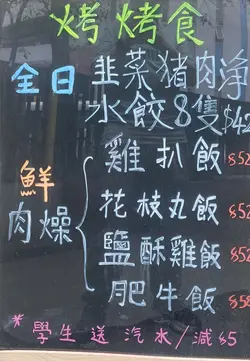 烤烤食
全日 韭菜豬肉淨
水餃8隻 $42
鮮肉燥
雞扒飯 $52
花枝丸飯 $52
鹽酥雞飯 $52
肥牛飯 $58
*學生送汽水/減$5